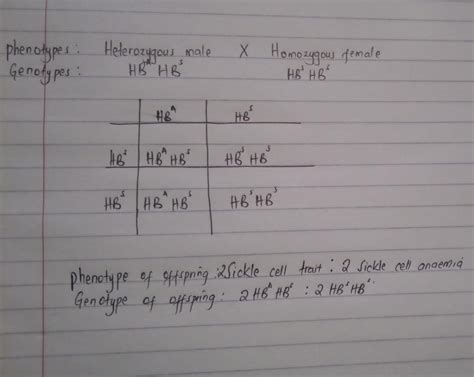 Phenotypes: Heterozygous male X Homozygous female
Genotypes: HBᴬ HBˢ HBˢ HBˢ
HBᴬ HBˢ
HBˢ HBᴬ HBˢ HBˢ HBˢ
HBˢ HBᴬ HBˢ HBˢ HBˢ
Phenotype of offspring: 2 Sickle cell trait : 2 sickle cell anaemia
Genotype of offspring: 2 HBᴬ HBˢ : 2 HBˢ HBˢ.